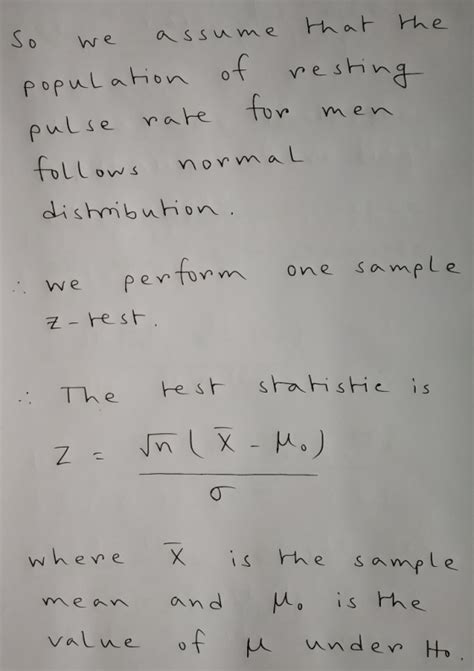 So we assume that the
population of resting
pulse rate for men
follows normal
distribution.
∴ we perform one sample
z-test.
∴ The test statistic is
Z = √n ( X̄ - μ₀ ) / σ
where X̄ is the sample
mean and μ₀ is the
value of μ under H₀.